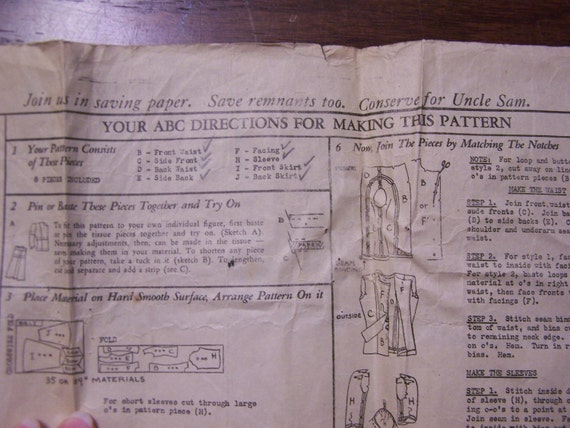 Join us in saving paper. Save remnants too. Conserve for Uncle Sam.
YOUR ABC DIRECTIONS FOR MAKING THIS PATTERN
1 Your Pattern Consists
of These Pieces
8 PIECES INCLUDED
B - Front Waist
C - Side Front
D - Back Waist
E - Side Back
F - Facing
H - Sleeve
I - Front Skirt
J - Back Skirt
2 Pin or Baste These Pieces Together and Try On
A
To fit this pattern to your own individual figure, first baste
or pin the tissue pieces together and try on. (Sketch A).
Necessary adjustments, then, can be made in the tissue —
saving making them in your material. To shorten any piece
of your pattern, take a tuck in it (sketch B). To lengthen,
cut and separate and add a strip (see C).
B
C
FABRIC
3 Place Material on Hard Smooth Surface, Arrange Pattern On it
FOLD
35 OR 39" MATERIALS
For short sleeves cut through large
o's in pattern piece (H).
6 Now, Join The Pieces by Matching The Notches
NOTE: For loop and butt
style 2, cut away on line
o's in pattern pieces (B
MAKE THE WAIST
STEP 1. Join front waist
side fronts (C). Join ba
(D) to side backs (E).
shoulder and underarm se
waist.
STEP 2. For style 1, fac
waist to inside with faci
For style 2, baste loops
material at o's in right
waist, then face fronts
with facings (F).
OUTSIDE
STEP 3. Stitch seam bin
tom of waist, and bias
to remaining neck edge.
on o's. Hem. Turn in
bias. Hem.
MAKE THE SLEEVES
STEP 1. Stitch inside d
of sleeve (H), through
ing o-o's to a point at
Join seam in sleeve. F